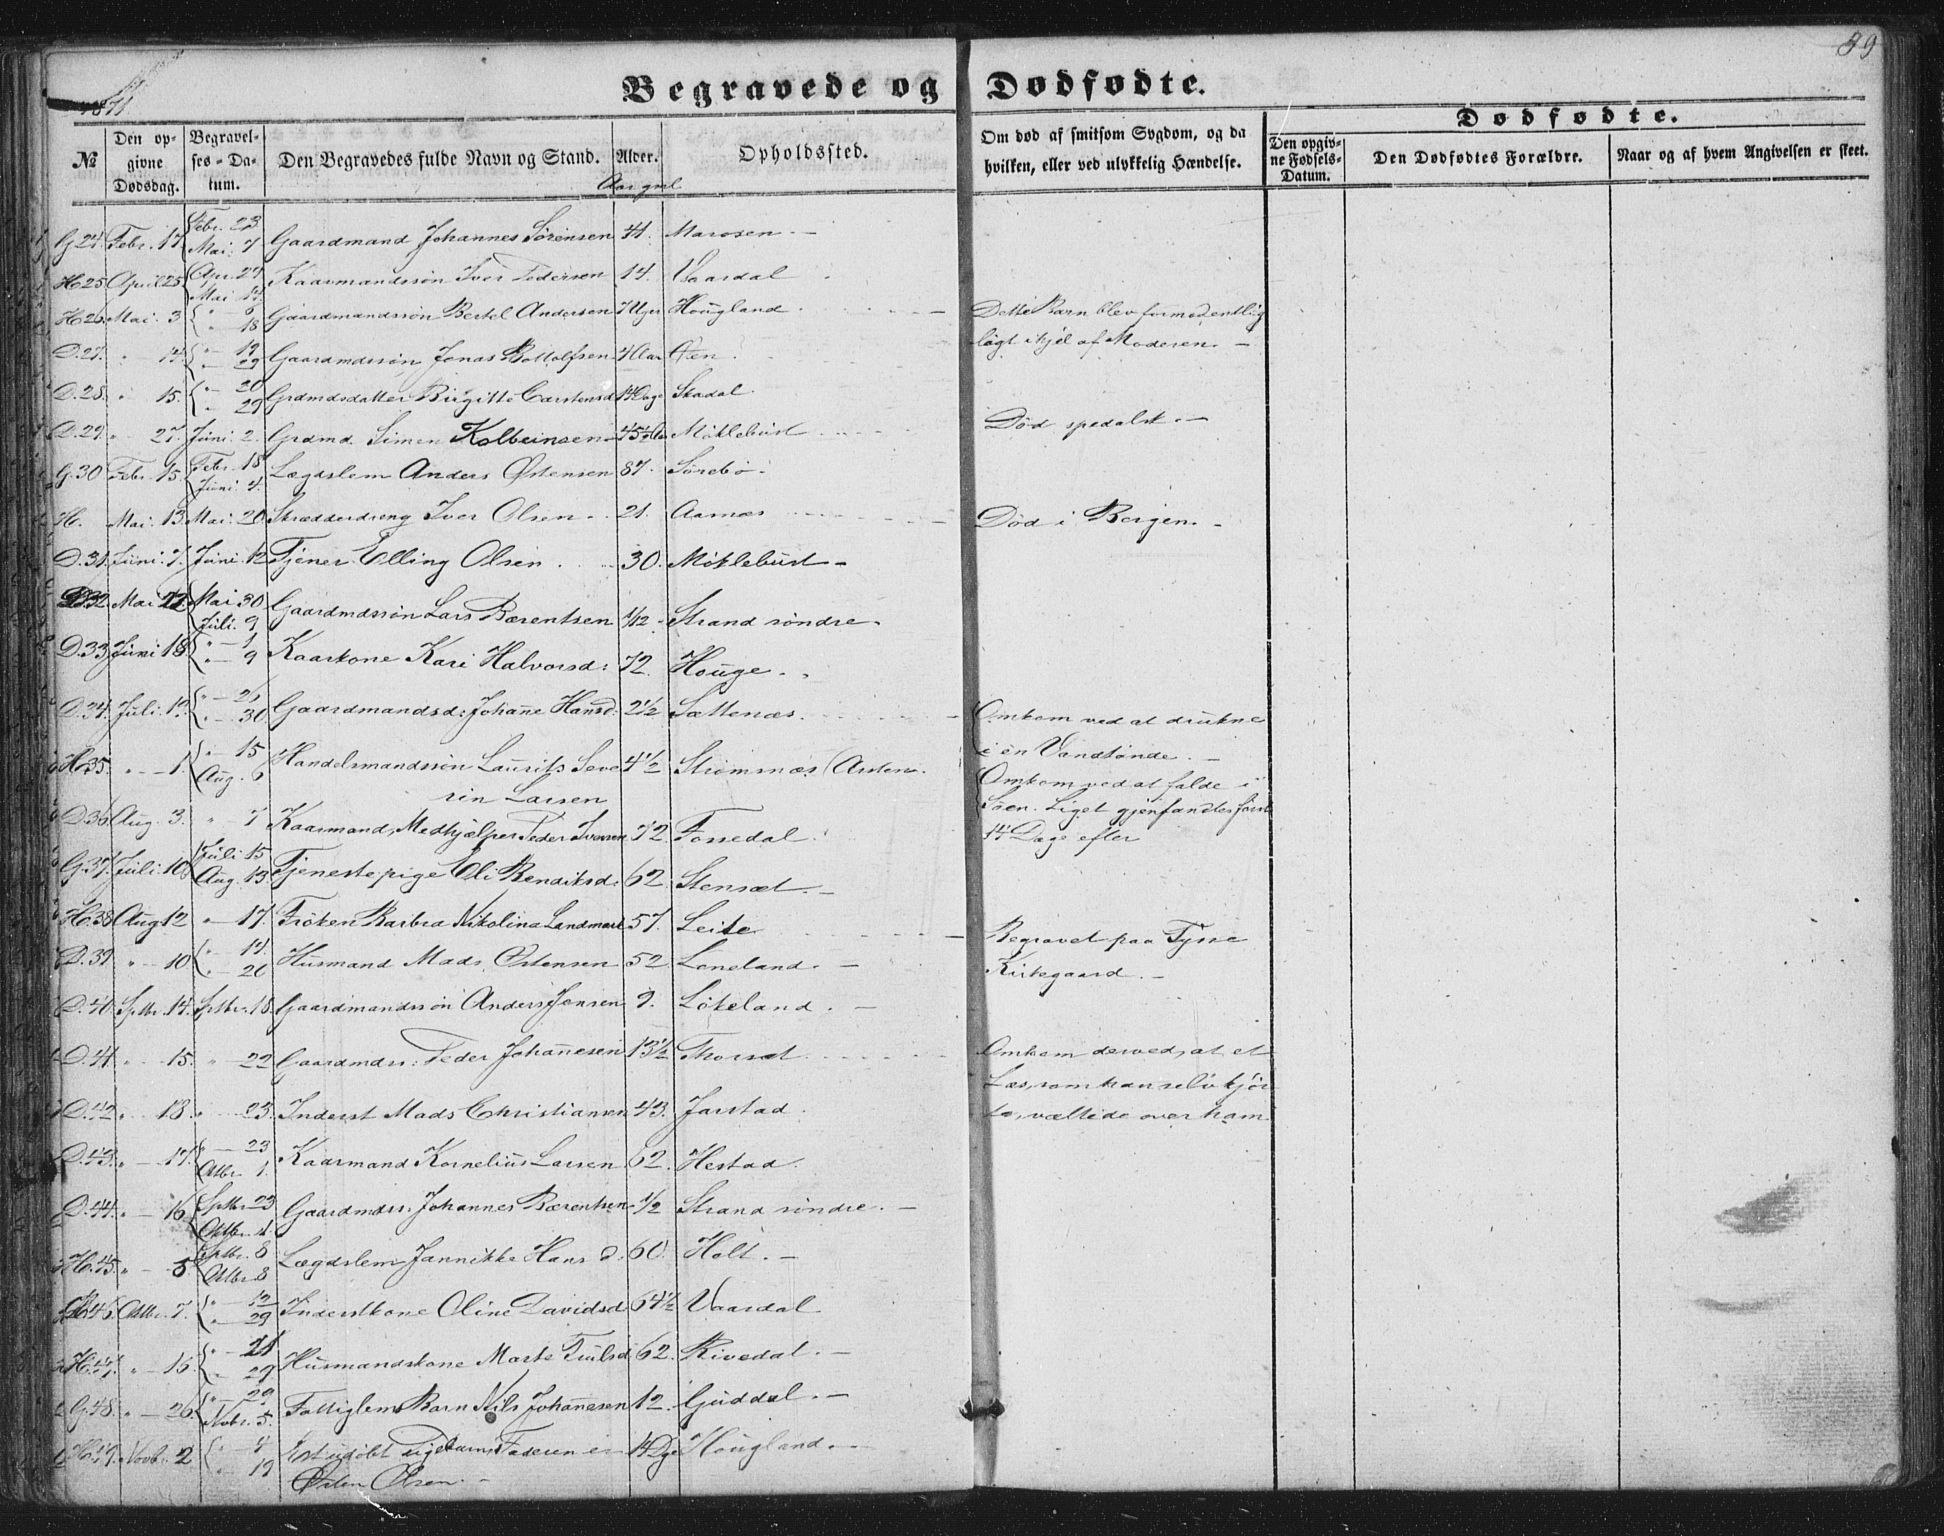 1871
89
Begravede og Dødfødte.
№
Den opgivne Dødsdag.
Begravelses-Datum.
Den Begravedes fulde Navn og Stand.
Alder.
Aar gml
Opholdssted.
Om død af smitsom Sygdom, og da hvilken, eller ved ulykkelig Hændelse.
Dødfødte.
Den opgivne Fødsels-Datum.
Den Dødfødtes Forældre.
Naar og af hvem Angivelsen er skeet.
G. 24. Febr. 17. Febr. 23 Mai. 7 Gaardmand Johannes Sørensen 41. Marosen.
H. 25 April 25. Apr. 27 Mai 14 Kaarmandssøn Iver Pedersen 14. Vaardal
H. 26. Mai. 3 " 6 " 18 Gaardmandssøn Bertel Andersen 7 Uger Hougland. Dette Barn blev formedentlig lagt ihjel af Moderen.
D. 27. " 14. " 19 " 29 Gaardmdssøn Jonas Bottolfsen 4 Aar Øen.
D. 28. " 15. " 20 " 29 Grdmdsdatter Birgitte Carstensd 14 Dage Skadal.
D. 29. " 27. Juni. 2. Grdmd. Simen Kolbeinsen 45 Møklebust Død spedalsk.
G. 30 Febr. 15. Febr. 18 Juni. 4. Lægdslem Anders Østensen 87. Sørebø.
H. Mai. 13 Mai. 20 Skrædderdreng Iver Olsen 21. Aarnes Død i Bergen.
D. 31. Juni. 7. Juni. 12 Tjener Elling Olsen 30. Møklebust
D. 32. Mai 22 Mai 30 Juli. 9 Gaardmdssøn Lars Bærentsen 1/12 Strand søndre.
D. 33 Juni 18. " 1 " 9 Kaarkone Kari Halvorsd: 72. Houge.
D. 34. Juli. 12. " 21 " 30 Gaardmandsd: Johanne Hansd. 2½ Sættenæs. Omkom ved at drukne i en Vandtønde.
H. 35. " 1. " 15 Aug. 6 Handelsmandssøn Laurits Severin Larsen 4½ Strømnæs (Asken. Omkom ved at falde i Søen. Liget gjenfandtes først 14 Dage efter
D. 36 Aug. 3. " 7 Kaarmand, Medhjælper Peder Iversen 72 Fossedal
G. 37. Juli. 10. Juli 15 Aug. 13. Tjenestepige Eli Bendiksd. 62. Stensæt.
H. 38 Aug 12 " 17. Frøken Barbra Nikolina Landmark 57. Leite Begravet paa Tysse Kirkegaard.
D. 39 " 10 " 14. " 20 Husmand Mads Østensen 52. Løneland.
D. 40. Sptbr. 14. Sptbr. 18. Gaardmandssøn Anders Jensen 9. Løkeland.
D. 41 " 15. " 22 Gaardmdss: Peder Johannesen 13½ Thorset Omkom derved, at et Læs, som han selv kjørte, væltede over ham
D. 42 " 18 " 23. Inderst Mads Christiansen 43. Jarstad.
D. 43. " 17. " 23 Octbr. 1. Kaarmand Kornelius Larsen 62. Hestad.
D. 44. " 16. Sptbr 23 Octbr. 1. Gaardmdss: Johannes Bærentsen ½ Strand søndre.
H. 45. " 5 Sptbr. 8 Octbr. 8 Lægdslem Jannikke Hansd. 60. Holt.
46. Octbr. 7. " 12 " 29 Inderstkone Oline Davidsd 64½ Vaardal
H. 47. " 16. " 21 " 29 Husmandskone Marte 62. Rivedal.
G. 48. " 26. " 29 Novbr. 5. Fattiglem Barn Nils Johannesen 12. Guddal.
H. 49. Novb. 2 " 4 " 19 Et udøbt Pigebarn, Faderen er Østen Olsen. 14 Dge Hougland.